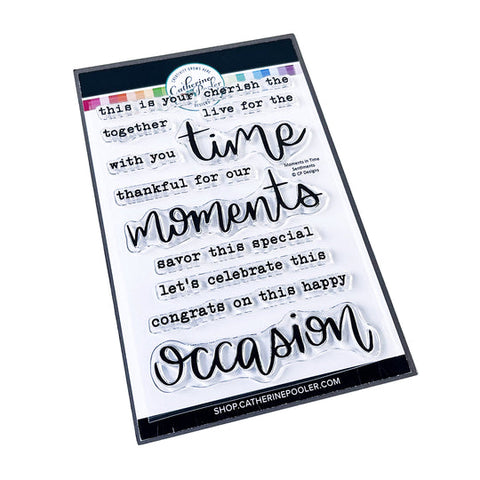 CREATIVITY GROWS HERE
Catherine
Pooler
DESIGNS
this is your cherish the
together live for the
with you time
Moments in Time
Sentiments
© CP Designs
thankful for our
moments
savor this special
let's celebrate this
congrats on this happy
occasion
SHOP.CATHERINEPOOLER.COM